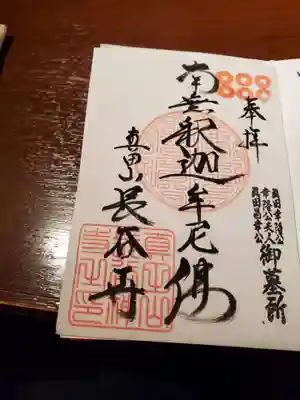 奉拝
真田幸隆公
幸隆公夫人
真田昌幸公
御墓所
南無釈迦牟尼佛
真田山長谷寺